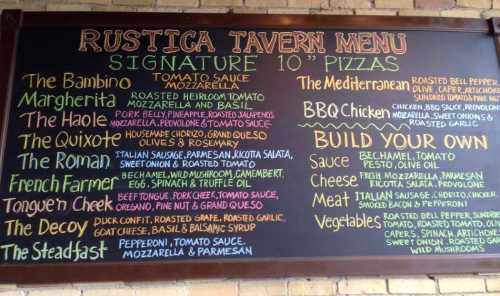 RUSTICA TAVERN MENU
SIGNATURE 10" PIZZAS
The Bambino TOMATO SAUCE
MOZZARELLA
Margherita ROASTED HEIRLOOM TOMATO
MOZZARELLA AND BASIL
The Haole PORK BELLY, PINEAPPLE, ROASTED JALAPENOS
MOZZARELLA, PROVOLONE & TOMATO SAUCE
The Quixote HOUSEMADE CHORIZO, GRAND QUESO
OLIVES & ROSEMARY
The Roman ITALIAN SAUSAGE, PARMESAN, RICOTTA SALATA,
SWEET ONION & ROASTED TOMATO
French Farmer BECHAMEL, WILD MUSHROOM, CAMEMBERT,
EGG, SPINACH & TRUFFLE OIL
Tongue n Cheek BEEF TONGUE, PORK CHEEK, TOMATO SAUCE,
OREGANO, PINE NUT & GRAND QUESO
The Decoy DUCK CONFIT, ROASTED GRAPE, ROASTED GARLIC,
GOAT CHEESE, BASIL & BALSAMIC SYRUP
The Steadfast PEPPERONI, TOMATO SAUCE,
MOZZARELLA & PARMESAN
The Mediterranean ROASTED BELL PEPPER
OLIVE, CAPER, ARTICHOKE
SUNDRIED TOMATO & PINE NUT
BBQ Chicken CHICKEN, BBQ SAUCE, PROVOLONE
MOZZARELLA, SWEET ONIONS &
ROASTED GARLIC
BUILD YOUR OWN
Sauce BECHAMEL, TOMATO
PESTO, OLIVE OIL
Cheese FRESH MOZZARELLA, PARMESAN
RICOTTA SALATA, PROVOLONE
Meat ITALIAN SAUSAGE, CHORIZO, CHICKEN,
SMOKED BACON & PEPPERONI
Vegetables ROASTED BELL PEPPER, SUNDRIED
TOMATO, ROASTED TOMATO, OLIVE
CAPERS, SPINACH, ARTICHOKE
SWEET ONION, ROASTED GARLIC
WILD MUSHROOMS